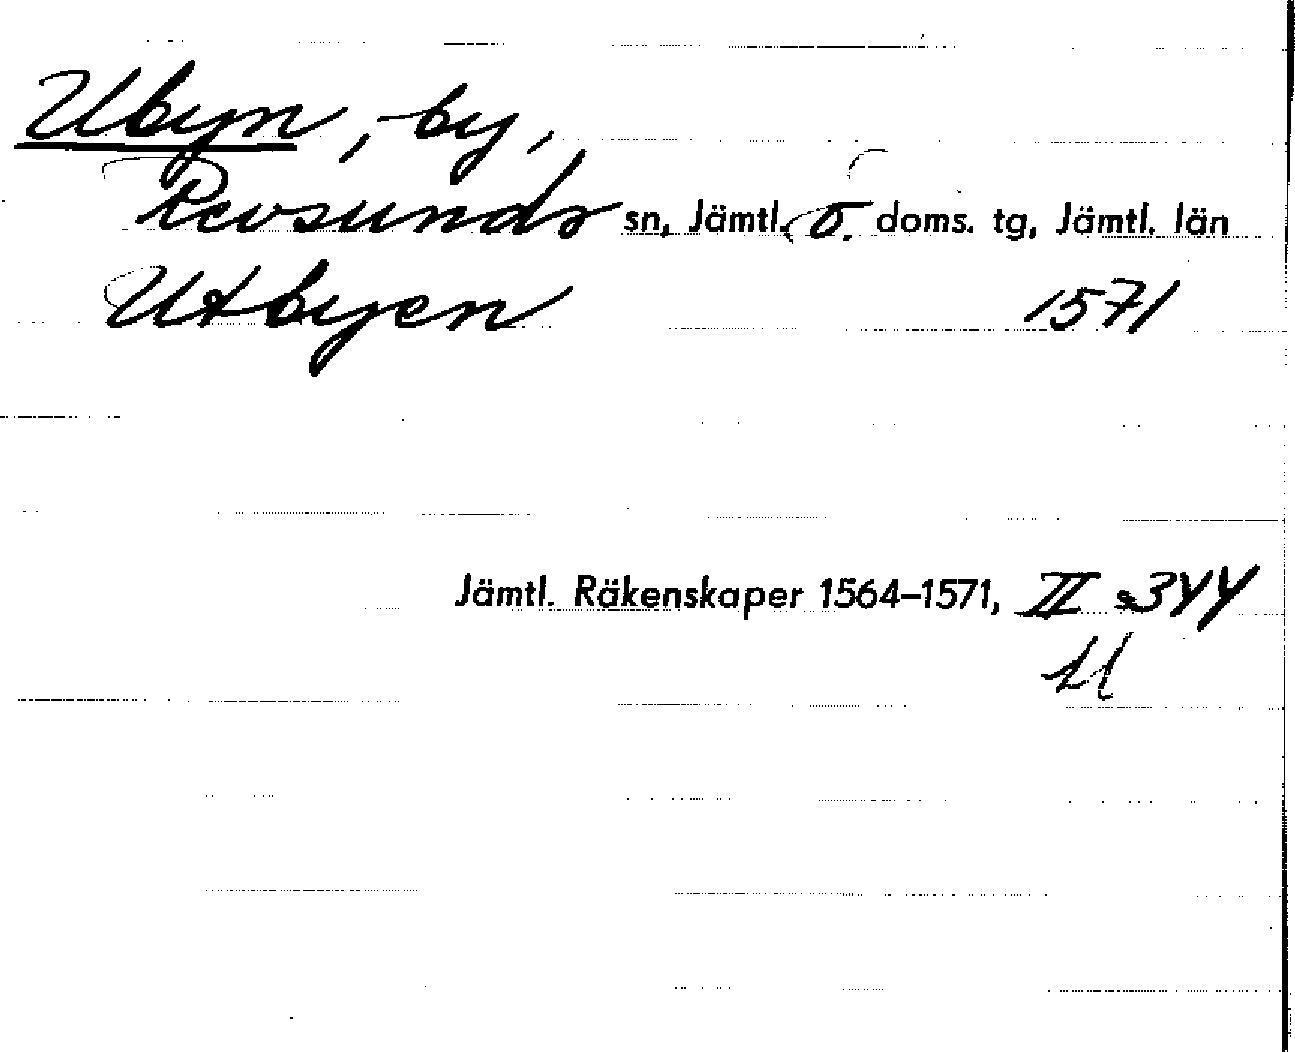 Ubyn, by,
Revsunds sn, Jämtl. ö. doms. tg, Jämtl. län
Utbyen 1571
Jämtl. Räkenskaper 1564–1571, II s 344